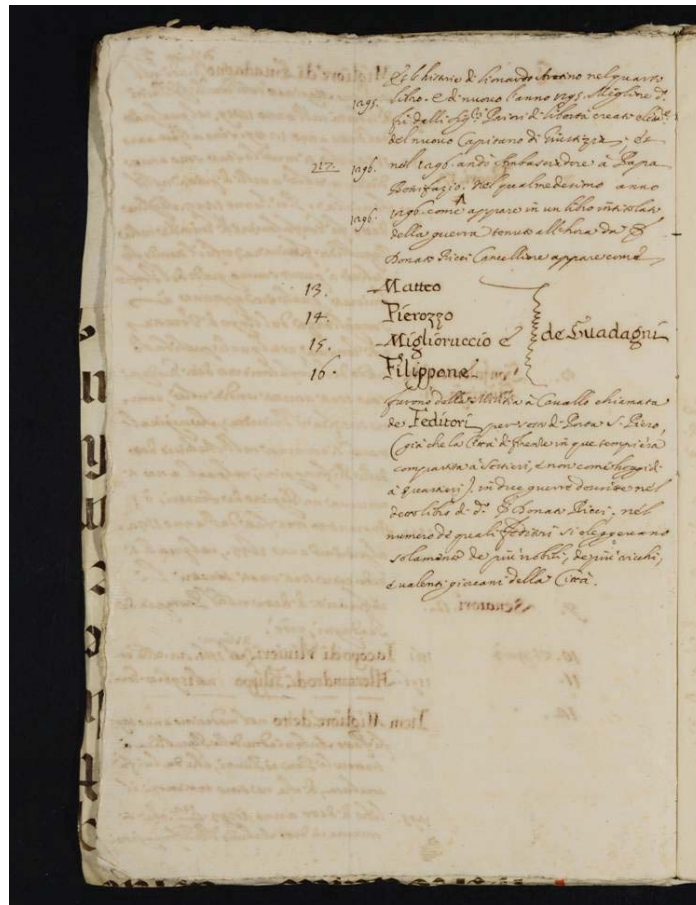 historie di Lionardo Aretino nel quarto
1295. libro. E di nuovo l'anno 1295. Migliore
fù delli Sig.ri Priori di libertà
del nuovo Capitano di Giustizia, et
217. 1296. nel 1296. andò Ambasciadore à Papa
Bonifazio. Nel qual medesimo anno
1296. 1296. come appare in un libro intitolato
della guerra tenuto all'hora da
Donato Ricci Cancelliere appare come
13. Matteo
14. Pierozzo
15. Miglioruccio é de Guadagni
16. Filippone
furono della Militia à Cavallo chiamata
de Feditori per di Porta S. Piero,
(già che la Città di Firenze in que tempi era
compartita à Sestieri, é non come hoggidi
à quartieri). in due guerre descritte nel
libro di d.o Donato Ricci. nel
numero de quali feditori si eleggevano
solamente de più nobili, de più ricchi,
é valenti giovani della Città.